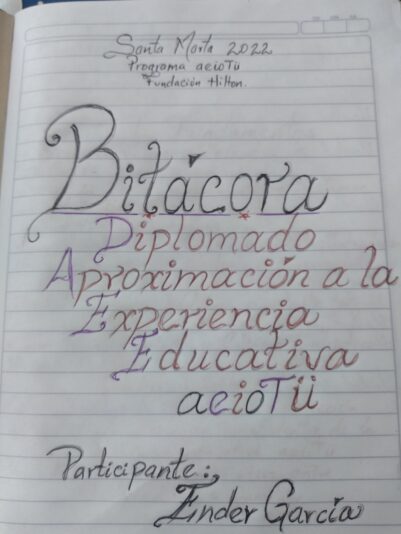 Santa Marta 2022
Programa aeioTü
Fundación Hilton.
Bitácora
Diplomado
Aproximación a la
Experiencia
Educativa
aeioTü
Participante:
Ender García